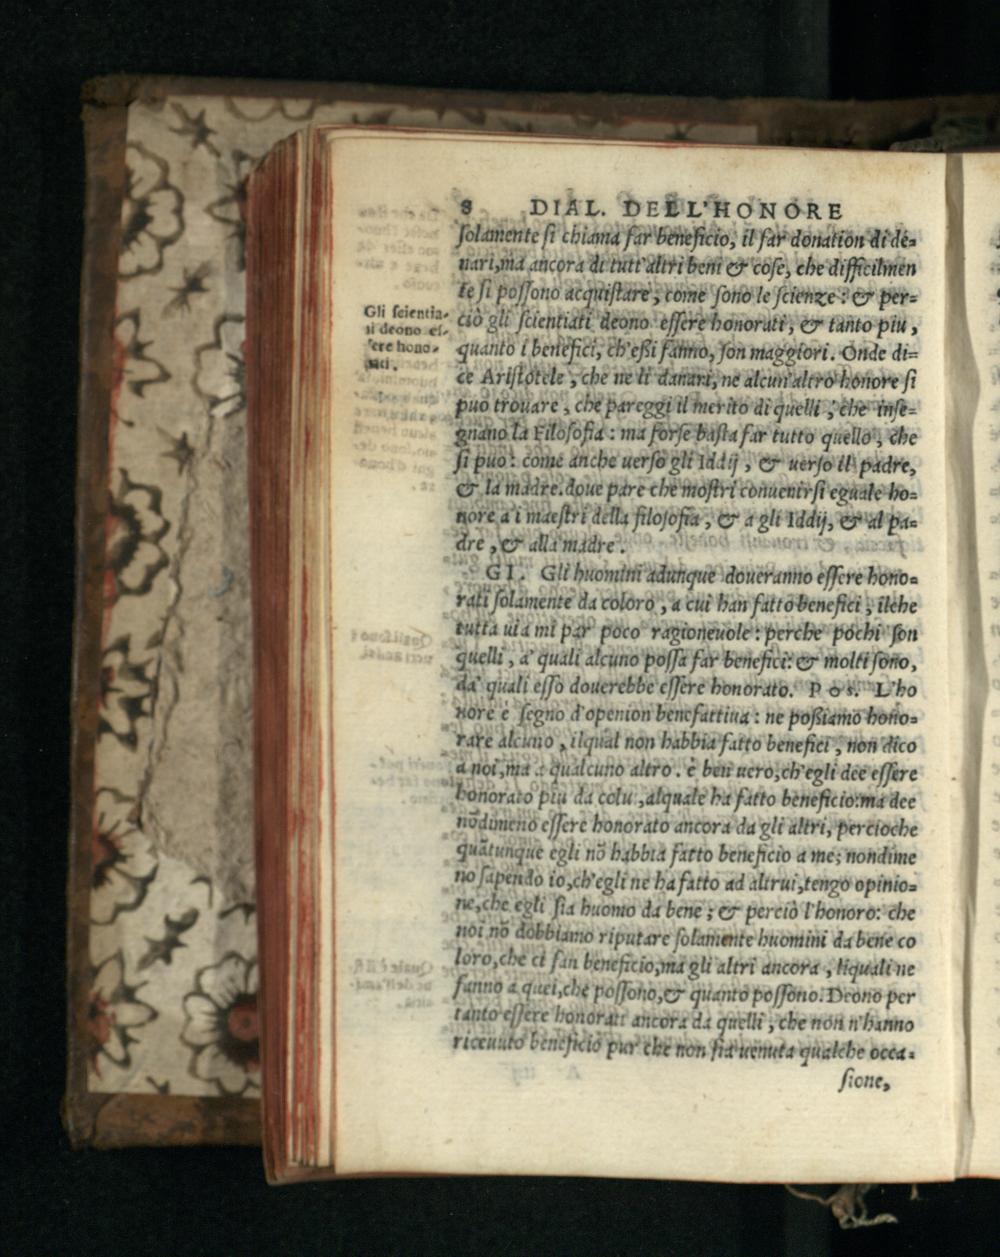 8 DIAL. DELL'HONORE
ſolamente ſi chiama far beneficio, il far donation di dē=
nari,ma ancora di tutt'altri beni & coſe, che difficilmen
te ſi poſſono acquiſtare, come ſono le ſcienze : & per=
ciò gli ſcientiati deono eſſere honorati, & tanto piu,
quanto i benefici, ch'eßi fanno, ſon maggiori. Onde di=
ce Ariſtotele, che ne li danari, ne alcun'altro honore ſi
puo trouare, che pareggi il merito di quelli, che inſe=
gnano la Filoſofia : ma forſe baſta far tutto quello, che
ſi puo : come anche uerſo gli Iddij, & uerſo il padre,
& la madre.doue pare che moſtri conuenirſi eguale ho=
nore a i maeſtri della filoſofia, & a gli Iddij, & al pa=
dre, & alla madre.
Gli ſcientia-
ti deono eſ-
ſere hono-
rati.
GI. Gli huomini adunque doueranno eſſere hono=
rati ſolamente da coloro, a cui han fatto benefici, ilche
tutta uia mi par poco ragioneuole : perche pochi ſon
quelli, a' quali alcuno poſſa far benefici: & molti ſono,
da' quali eſſo douerebbe eſſere honorato. POS. L'ho
nore è ſegno d'openion benefattiua : ne poßiamo hono=
rare alcuno, ilqual non habbia fatto benefici, non dico
a noi,ma a qualcuno altro. è ben uero,ch'egli dee eſſere
honorato piu da colui,alquale ha fatto beneficio:ma dee
nōdimeno eſſere honorato ancora da gli altri, percioche
quātunque egli nō habbia fatto beneficio a me; nondime
no ſapendo io,ch'egli ne ha fatto ad altrui,tengo opinio=
ne,che egli ſia huomo da bene ; & perciò l'honoro: che
noi nō dobbiamo riputare ſolamente huomini da bene co
loro,che ci fan beneficio,ma gli altri ancora, liquali ne
fanno a quei,che poſſono,& quanto poſſono. Deono per
tanto eſſere honorati ancora da quelli, che non n'hanno
riceuuto beneficio pur che non ſia uenuta qualche occa=
ſione,